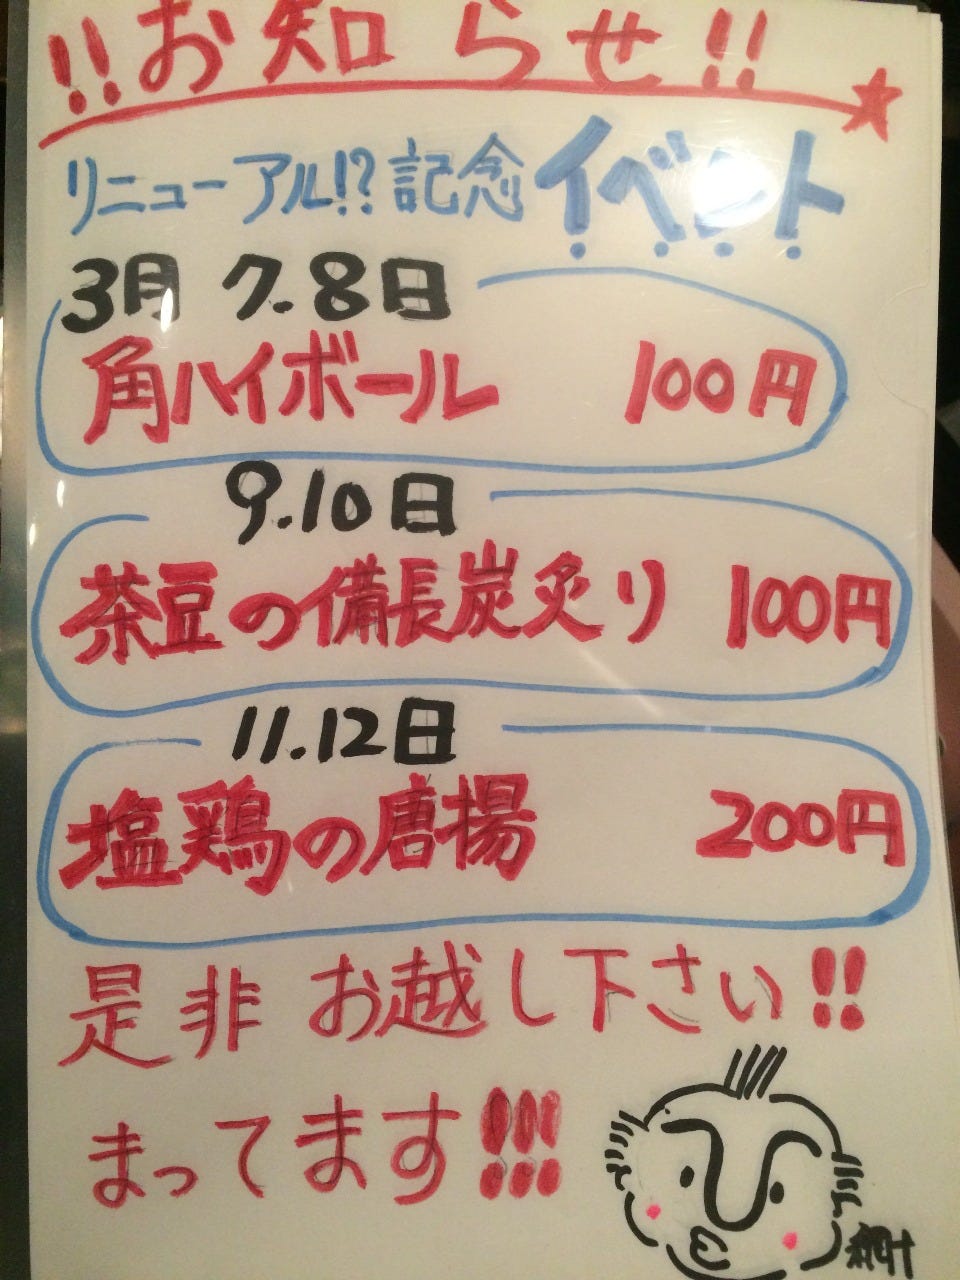 !!お知らせ!!
リニューアル!?記念イベント
3月 7.8日
角ハイボール 100円
9.10日
茶豆の備長炭炙り 100円
11.12日
塩鶏の唐揚 200円
是非お越し下さい!!
まってます!!!